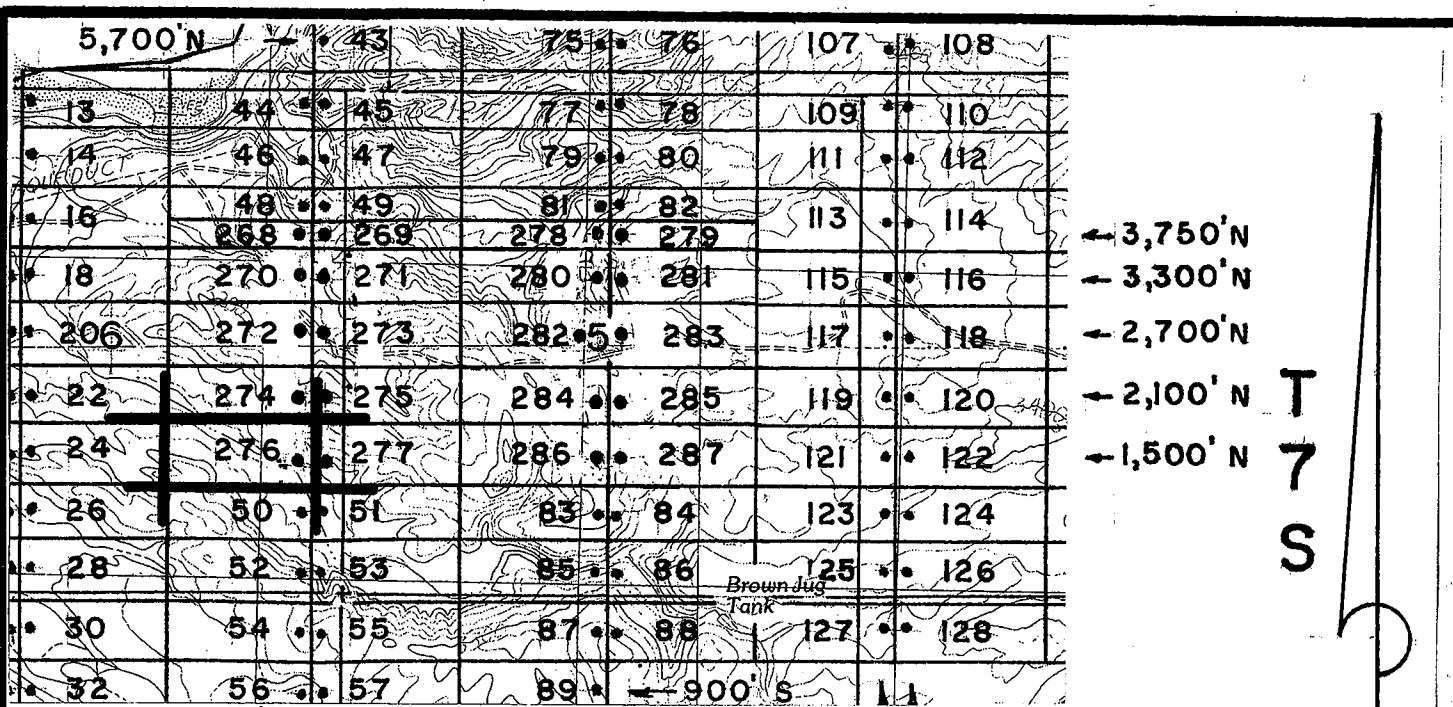 5,700'N 43 75 76 107 108
13 44 45 77 78 109 110
14 46 47 79 80 111 112
DUCT
16 48 49 81 82 113 114
268 269 278 279 3,750'N
18 270 271 280 281 115 116 3,300'N
20 6 272 273 282 5 283 117 118 2,700'N
22 274 275 284 285 119 120 2,100'N
T
24 276 277 286 287 121 122 1,500'N
7
26 50 51 83 84 123 124
S
28 52 53 85 86 125 126
Brown Jug
Tank
30 54 55 87 88 127 128
32 56 57 89 900' S